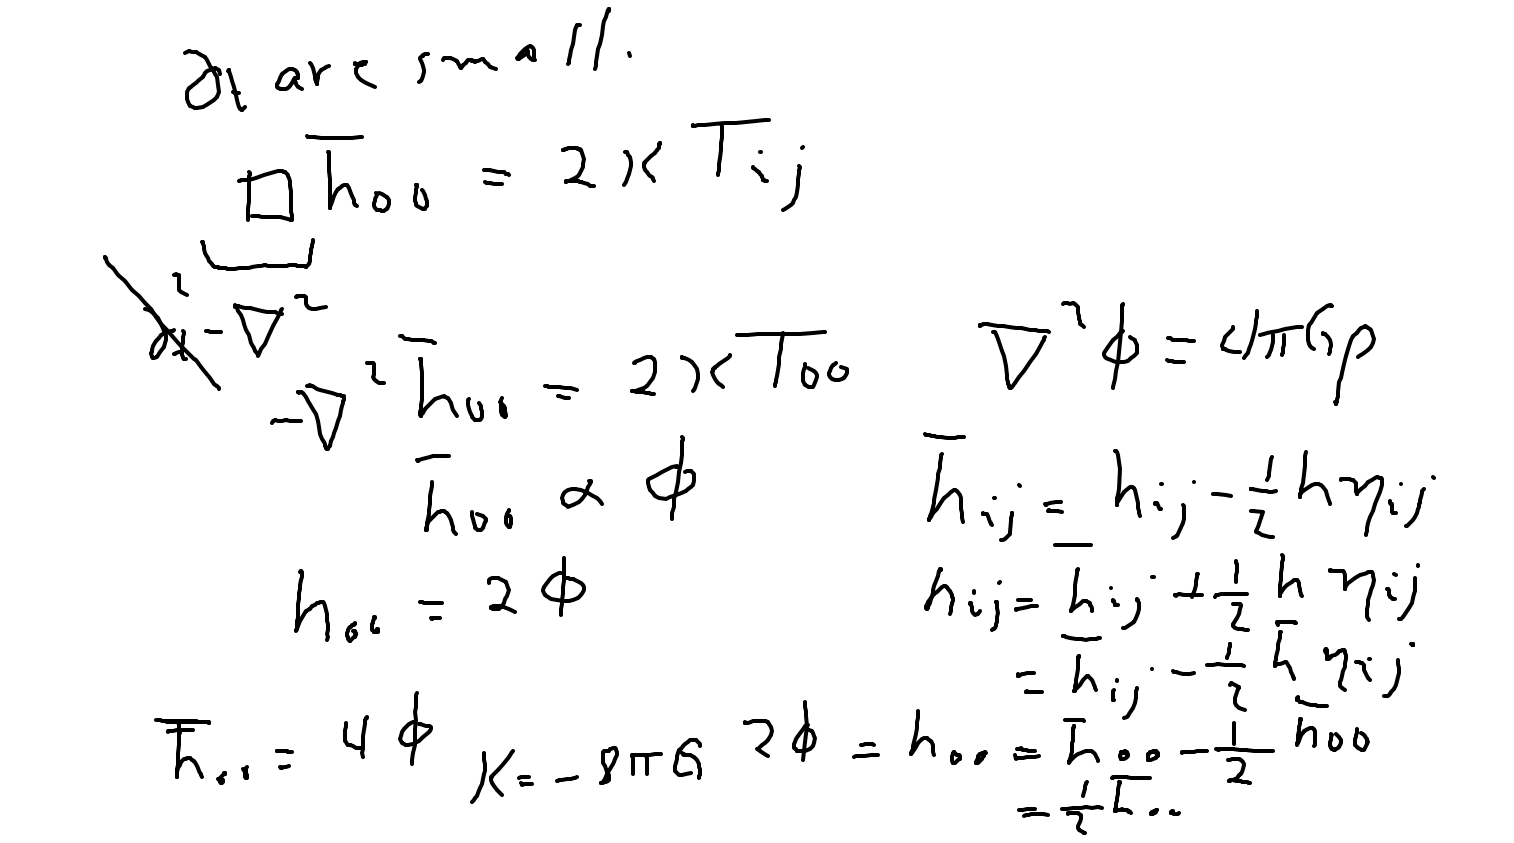 ∂t are small.
□ h̄₀₀ = 2κ T̄ᵢⱼ
∂t² - ∇²
-∇² h̄₀₀ = 2κ T̄₀₀
∇²ϕ = 4πGρ
h̄₀₀ ∝ ϕ
h̄ᵢⱼ = hᵢⱼ - ½ hηᵢⱼ
h₀₀ = 2ϕ
hᵢⱼ = h̄ᵢⱼ + ½ h ηᵢⱼ
= h̄ᵢⱼ - ½ h̄ ηᵢⱼ
h̄₀₀ = 4ϕ
κ = -8πG
2ϕ = h₀₀ = h̄₀₀ - ½ h̄₀₀
= ½ h̄₀₀